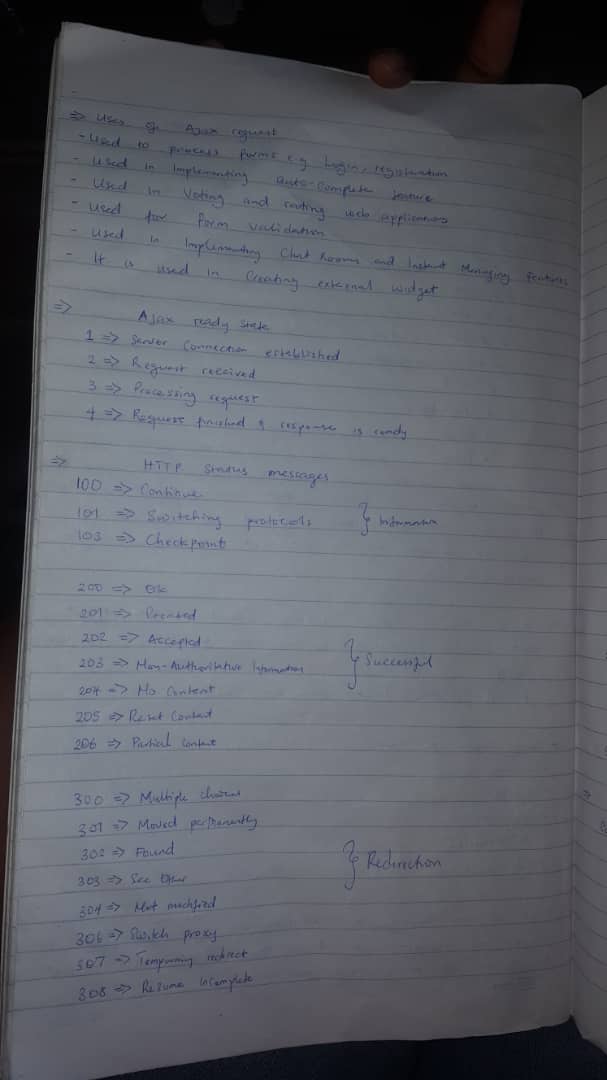 => Uses of Ajax request
- Used to process forms e.g Login, registration
- Used in Implementing auto-complete feature
- Used in Voting and rating web applications
- Used for Form validation
- Used in Implementing Chat Rooms and Instant Messaging features
- It is used in Creating external widget
=> Ajax ready state
1 => Server Connection established
2 => Request received
3 => Processing request
4 => Request finished & response is ready
=> HTTP Status messages
100 => Continue
101 => Switching protocols } Information
103 => Checkpoint
200 => Ok
201 => Created
202 => Accepted
203 => Non-Authoritative Information } Successful
204 => No Content
205 => Reset Content
206 => Partial Content
300 => Multiple choices
301 => Moved permanently
302 => Found } Redirection
303 => See Other
304 => Not modified
306 => Switch proxy
307 => Temporary redirect
308 => Resume Incomplete